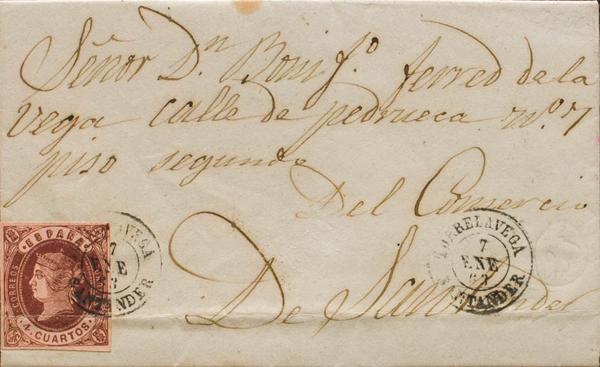 Señor Dn Bonifo. ferred de la
Vega calle de pedrueca no. 7
piso segundo
Del Comercio
De Santander
ESPAÑA
CORREOS
4 CUARTOS
TORRELAVEGA
7
ENE
SANTANDER
TORRELAVEGA
7
ENE
SANTANDER